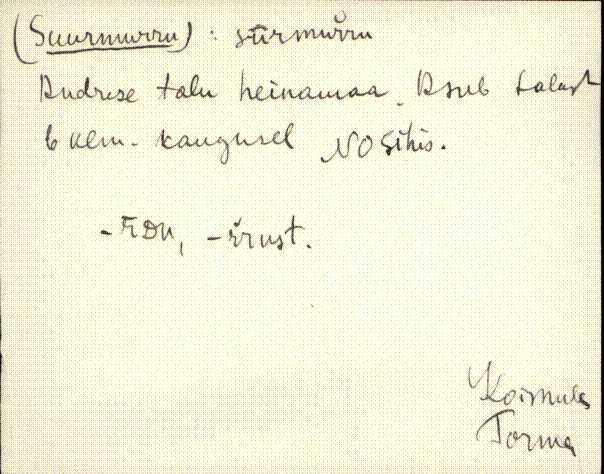 (Suurmurru) : sūrmuřru
Andrese talu heinamaa. Asub talust
6 klm. kaugusel NO sihis.
-řřust.
Koimula
Torma